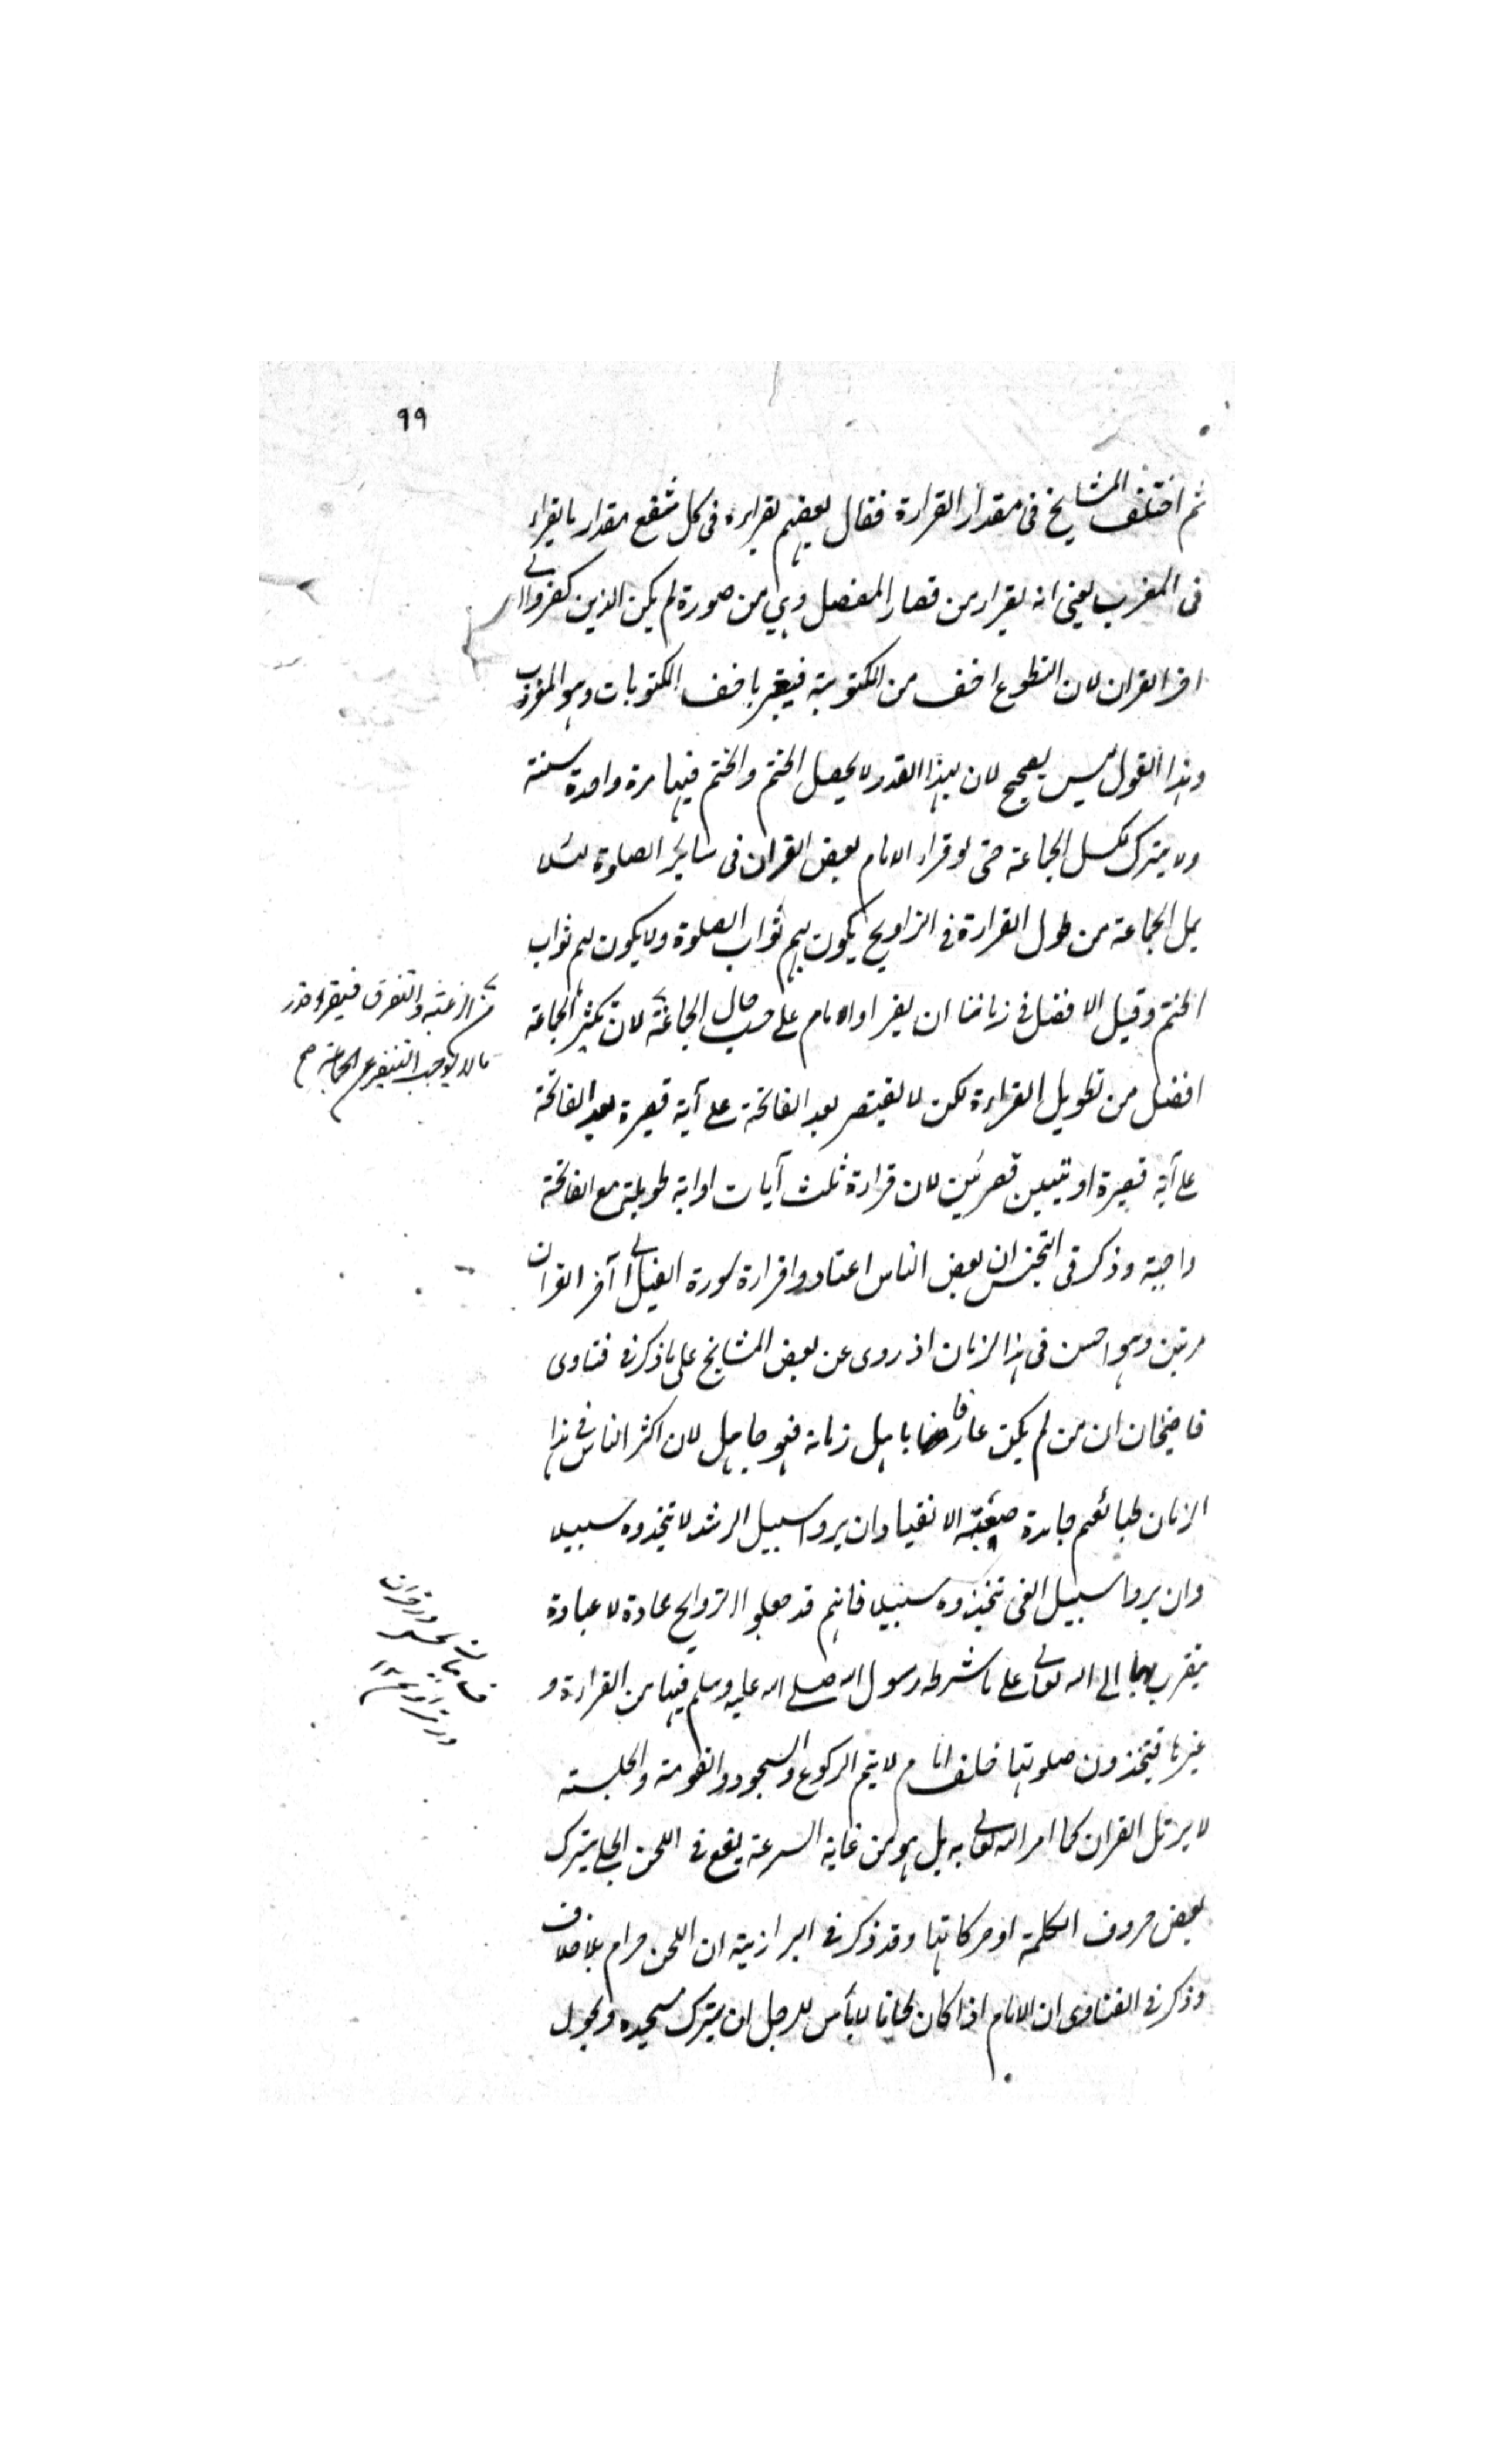 ٩٩
ثم اختلف المشايخ فى مقدار القراءة فقال بعضهم يقراء فى كل شفع مقدار ما يقراء
فى المغرب يعنى انه يقراء من قصار المفصل وهى من صورة لم يكن الذين كفروا الى
اخر القران لان التطوع اخف من المكتوبة فيعتبر باخف المكتوبات وهو المغرب
وهذا القول ليس بصحيح لان بهذا القدر لا يحصل الختم والختم فيها مرة واحدة سنة
ولا يترك لكسل الجماعة حتى لو قراء الامام بعض القران فى سائر الصلوة لئلا
يمل الجماعة من طول القراءة فى التراويح يكون لهم ثواب الصلوة ولا يكون لهم ثواب
الختم وقيل الافضل فى زماننا ان يقراء الامام على حسب حال الجماعة لان تكثير الجماعة
من الرغبة والتفرق فيقرء قدر
ما لا يوجب التنفير عن الجماعة صح
افضل من تطويل القراءة لكن لا يقتصر بعد الفاتحة على آية قصيرة بعد الفاتحة
على آية قصيرة او آيتين قصيرتين لان قراءة ثلث آيات او اية طويلة مع الفاتحة
واجبة وذكر فى التجنيس ان بعض الناس اعتادوا قراءة سورة الفيل الى آخر القران
مرتين وهو احسن فى هذا الزمان اذ روى عن بعض المشايخ على ما ذكر فى فتاوى
قاضيخان ان من لم يكن عارفا باهل زمانه فهو جاهل لان اكثر الناس فى هذا
الزمان طبائعهم جامدة صعبة الانقياد وان يروا سبيل الرشد لا تيخذوه سبيلا
وان يروا سبيل الغى تيخذوه سبيلا فانهم قد جعلوا التروايح عادة لا عبادة
يتقرب بها الى الله تعالى على ما شرطه رسول الله صلى الله عليه وسلم فيها من القراءة و
غيرها فيتخذون صلوتها خلف امام لا يتم الركوع والسجود والقومة والجلسة
لا يرتل القران كما امر الله تعالى به بل هو من غاية السرعة يقع فى اللحن الجلى بترك
بعض حروف الكلمة او حركاتها وقد ذكر فى البزازية ان اللحن حرام بلا خلاف
وذكر فى الفتاوى ان الامام اذا كان لحانا لا بأس للرجل ان يترك مسجده ويحول